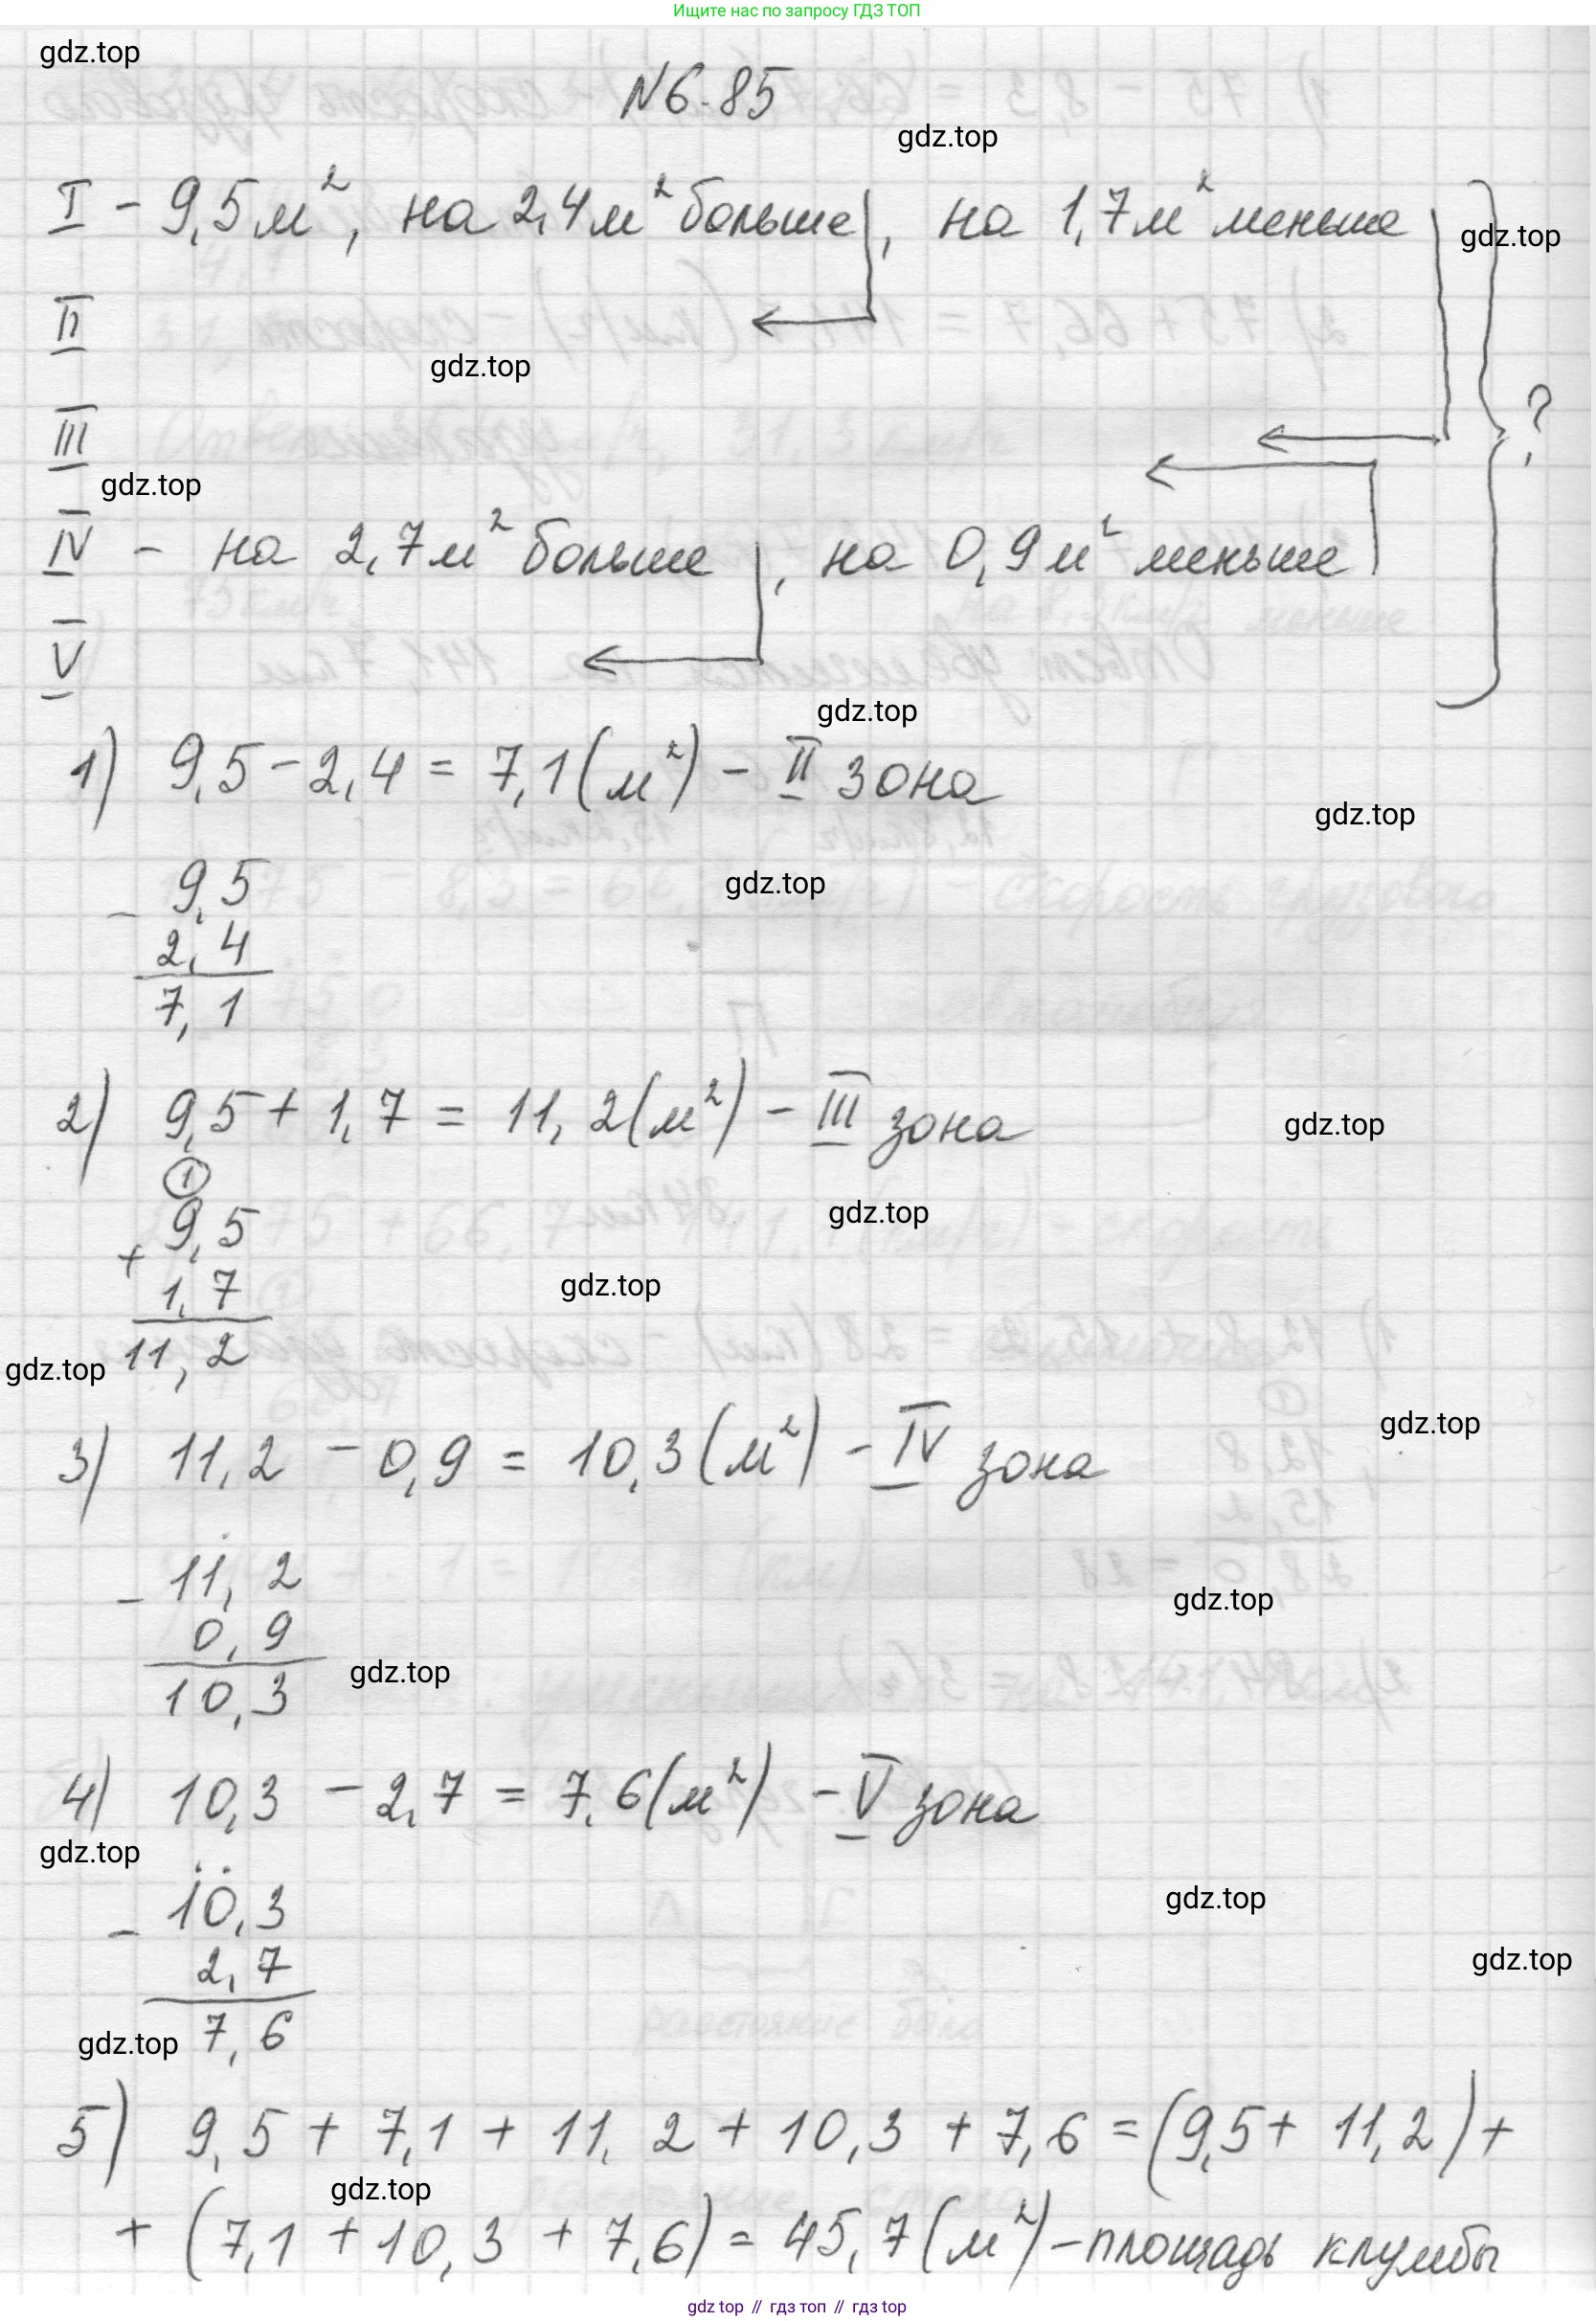 Ищите нас по запросу ГДЗ ТОП
gdz.top
N6.85
gdz.top
I - 9,5м², на 2,4м² больше, на 1,7м² меньше
gdz.top
II
gdz.top
III
?
gdz.top
IV - на 2,7м² больше, на 0,9м² меньше
V
gdz.top
1) 9,5-2,4 = 7,1(м²) - II зона
gdz.top
gdz.top
- 9,5
2,4
7,1
2) 9,5+1,7 = 11,2(м²) - III зона
gdz.top
1
gdz.top
+ 9,5
gdz.top
1,7
11,2
gdz.top
gdz.top
3) 11,2 - 0,9 = 10,3(м²) - IV зона
- 11,2
gdz.top
0,9
gdz.top
10,3
4) 10,3 - 2,7 = 7,6(м²) - V зона
gdz.top
- 10,3
gdz.top
2,7
gdz.top
7,6
gdz.top
5) 9,5 + 7,1 + 11,2 + 10,3 + 7,6 = (9,5+ 11,2)+
gdz.top
+ (7,1 + 10,3 + 7,6) = 45,7(м²) - площадь клумбы
gdz top // гдз топ // гдз top